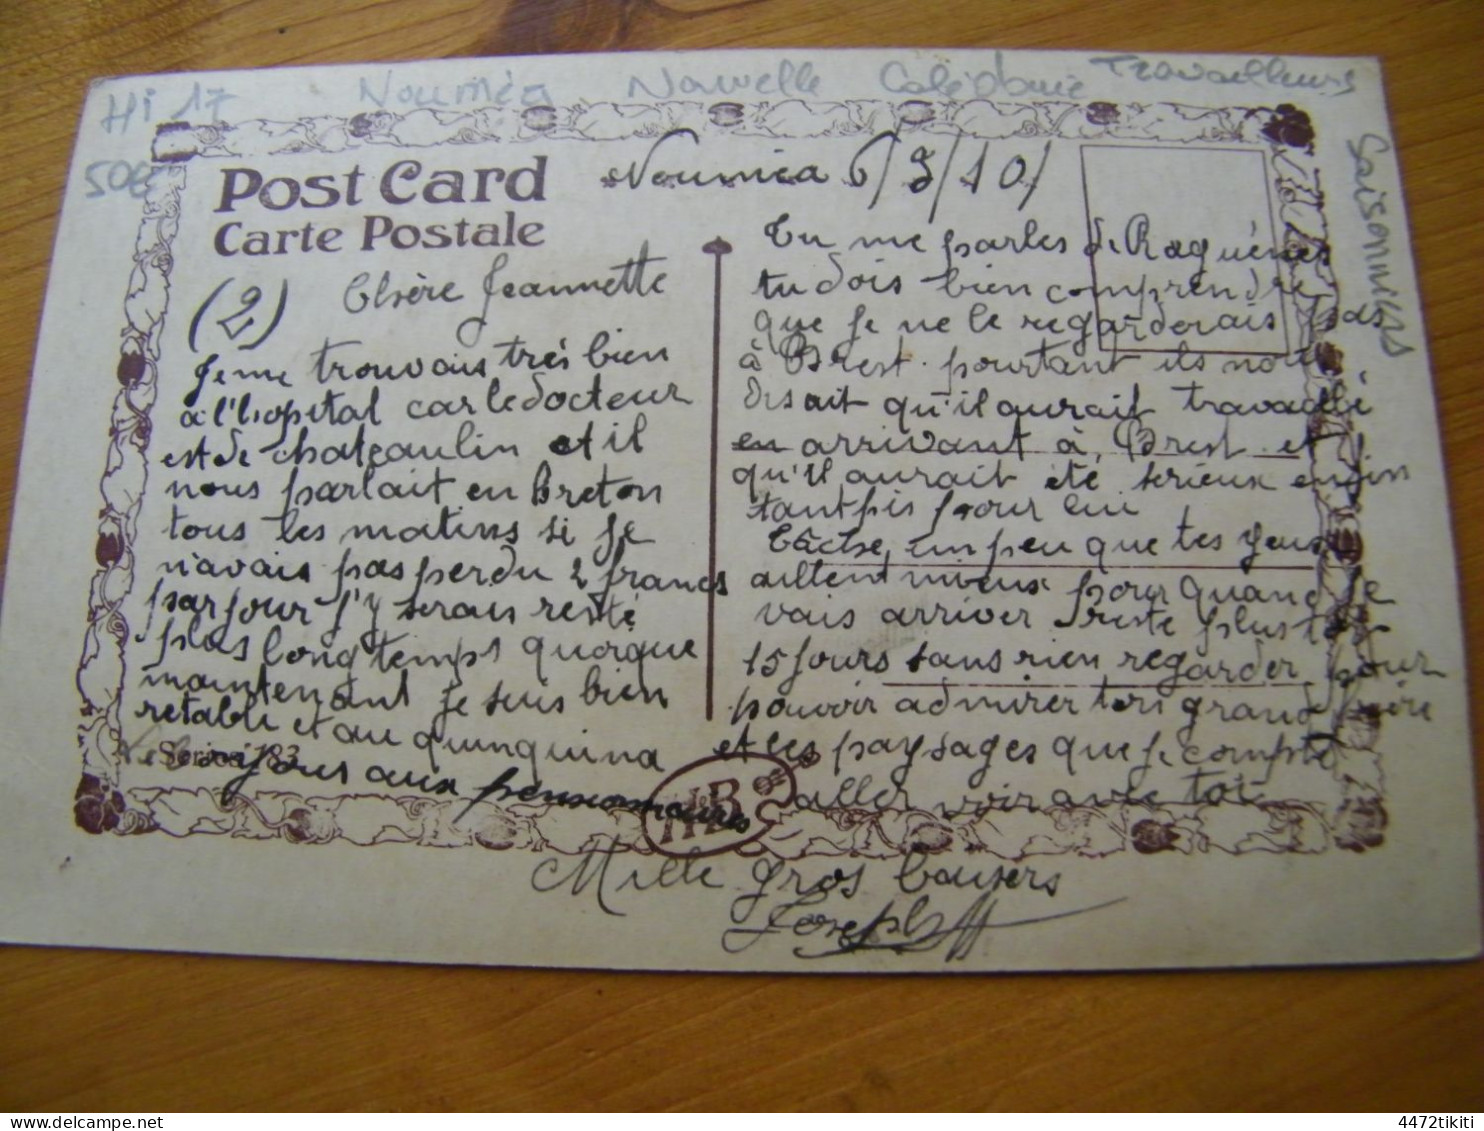 Hi 17 Nouméa Nouvelle Calédonie Travailleurs
Saisonniers
50€
Post Card
Carte Postale
Nouméa 6/9/10/
(2) Chère Jeannette
Je me trouvais très bien
à l'hopital car le docteur
est de chateaulin et il
nous parlait en Breton
tous les matins si je
n'avais pas perdu 2 francs
par jour j'y serais resté
plus longtemps quoique
maintenant je suis bien
retabli et au quinquina
Série 183
toujours aux pensionnaires
Tu me parles de Raguénès
tu dois bien comprendre
que je ne le regarderais pas
à Brest. pourtant ils nous
disait qu'il aurait travaillé
en arrivant à Brest et
qu'il aurait été serieux enfin
tant pis pour lui
Tâche un peu que tes yeux
aillent mieux pour quand je
vais arriver Je reste plus tôt
15 jours sans rien regarder pour
pouvoir admirer ton grand frère
et les paysages que je compte
aller voir avec toi
Mille gros baisers
Joseph
4472tikiti